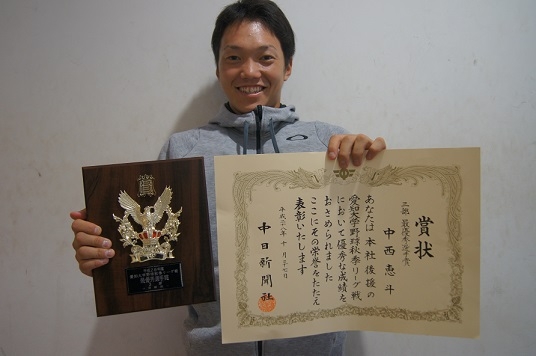 賞状
三部 最優秀選手賞
中西 恵斗
あなたは本社後援の
愛知大学野球秋季リーグ戦
において優秀な成績を
おさめられました
ここにその栄誉をたたえ
表彰いたします
平成二十八年 十月二十七日
中日新聞社
賞
最優秀選手賞